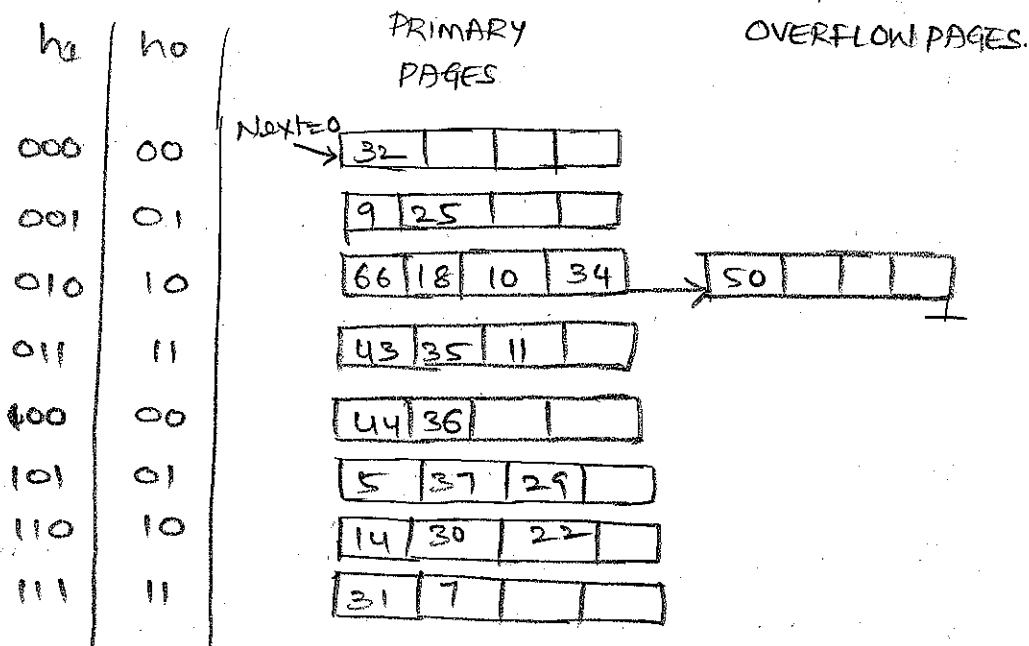 h1 h0 PRIMARY PAGES OVERFLOW PAGES.
Next=0
000 00 32
001 01 9 25
010 10 66 18 10 34 50
011 11 43 35 11
100 00 44 36
101 01 5 37 29
110 10 14 30 22
111 11 31 7